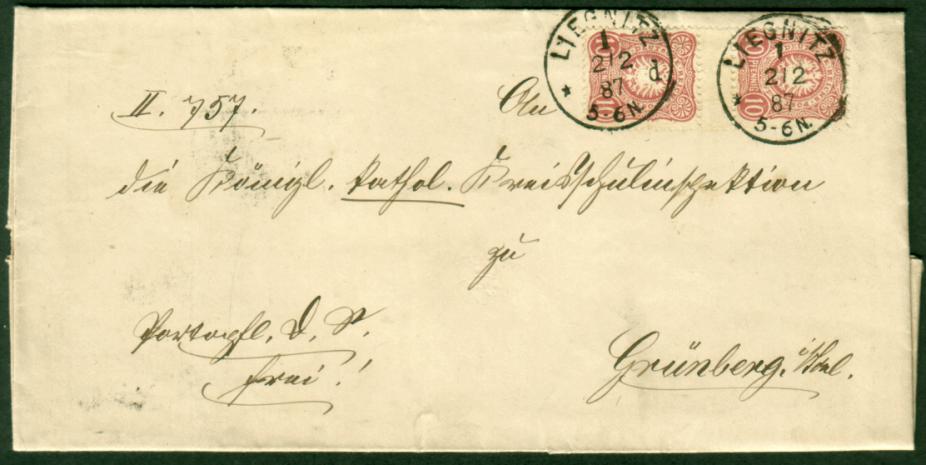 LIEGNITZ
1
2/2
87
d.
* 5-6N.
LIEGNITZ
1
2/2
87
* 5-6N.
10
10
10
II. 757.
An
die Königl. kathol. Kreisschulinspektion
zu
Portopfl. D. S.
frei!
Grünberg.